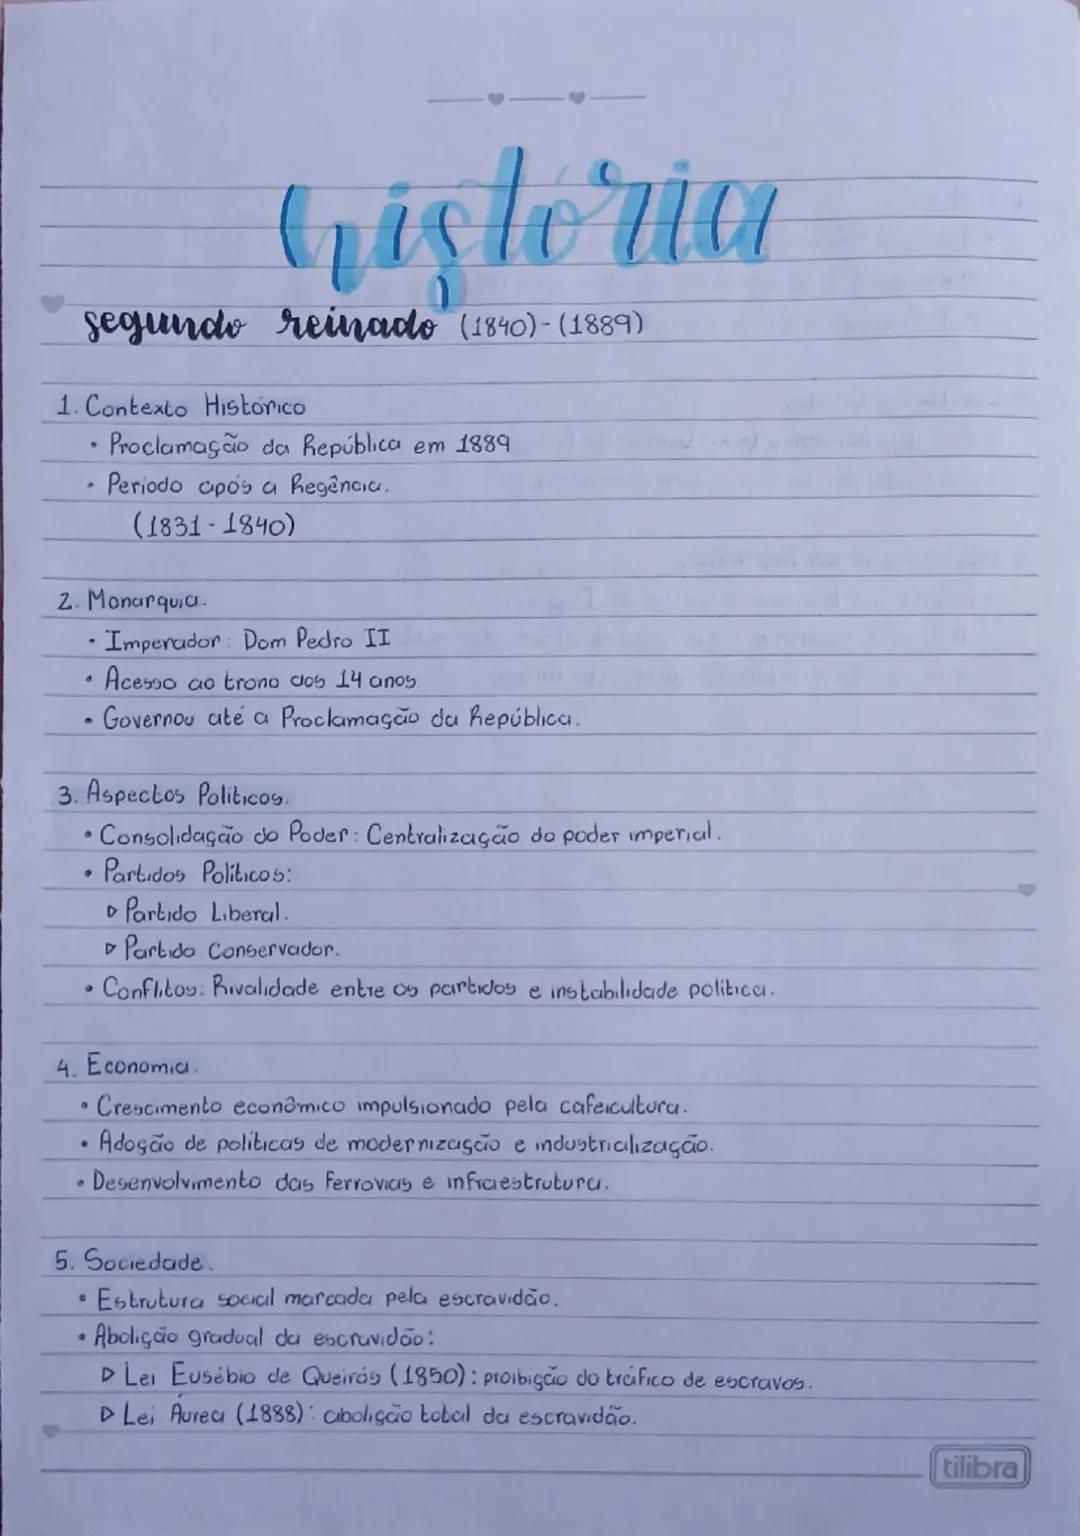 história
segundo reinado (1840)-(1889)
1. Contexto Histórico
• Proclamação da República em 1889
• Período após a Regência.
(1831-1840)
2. Monarquia.
• Imperador: Dom Pedro II
• Acesso ao trono aos 14 anos.
• Governou até a Proclamação da República.
3. Aspectos Políticos.
• Consolidação do Poder: Centralização do poder imperial.
• Partidos Políticos:
▷ Partido Liberal.
▷ Partido Conservador.
• Conflitos: Rivalidade entre os partidos e instabilidade política.
4. Economia.
• Crescimento econômico impulsionado pela cafeicultura.
• Adoção de políticas de modernização e industrialização.
• Desenvolvimento das ferrovias e infraestrutura.
5. Sociedade.
• Estrutura social marcada pela escravidão.
• Abolição gradual da escravidão:
▷ Lei Eusébio de Queirós (1850): proibição do tráfico de escravos.
▷ Lei Áurea (1888): abolição total da escravidão.
tilibra